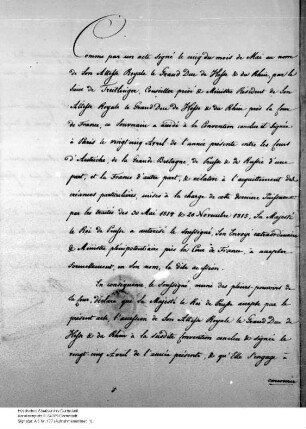 Comme par un acte signé le cinq du mois de Mai au nom
de Son Altesse Royale le Grand Duc de Hesse & du Rhin, par le
Sieur de Treitlinger, Conseiller privé & Ministre Président de Son
Altesse Royale le Grand Duc de Hesse & du Rhin près la Cour
de France, ce Souverain a accédé à la Convention conclue & signée
à Paris le vingt-cinq Avril de l'année présente entre les Cours
d'Autriche, de la Grande Bretagne, de Prusse & de Russie d'une
part, et la France d'autre part, & relative à l'acquittement des
créances particulières, mises à la charge de cette dernière Puissance
par les traités des 30 Mai 1814 & 20 Novembre 1815, Sa Majesté
le Roi de Prusse a autorisé le soussigné, Son Envoyé extraordinaire
& Ministre plénipotentiaire près la Cour de France, à accepter
formellement, en Son nom, la dite accession.
En conséquence le Soussigné muni des pleins-pouvoirs de
Sa Cour, déclare que Sa Majesté le Roi de Prusse accepte par le
présent acte l'accession de Son Altesse Royale le Grand Duc de
Hesse & du Rhin à la susdite Convention conclue & signée le
vingt-cinq Avril de l'année présente, & qu'Elle s'engage à